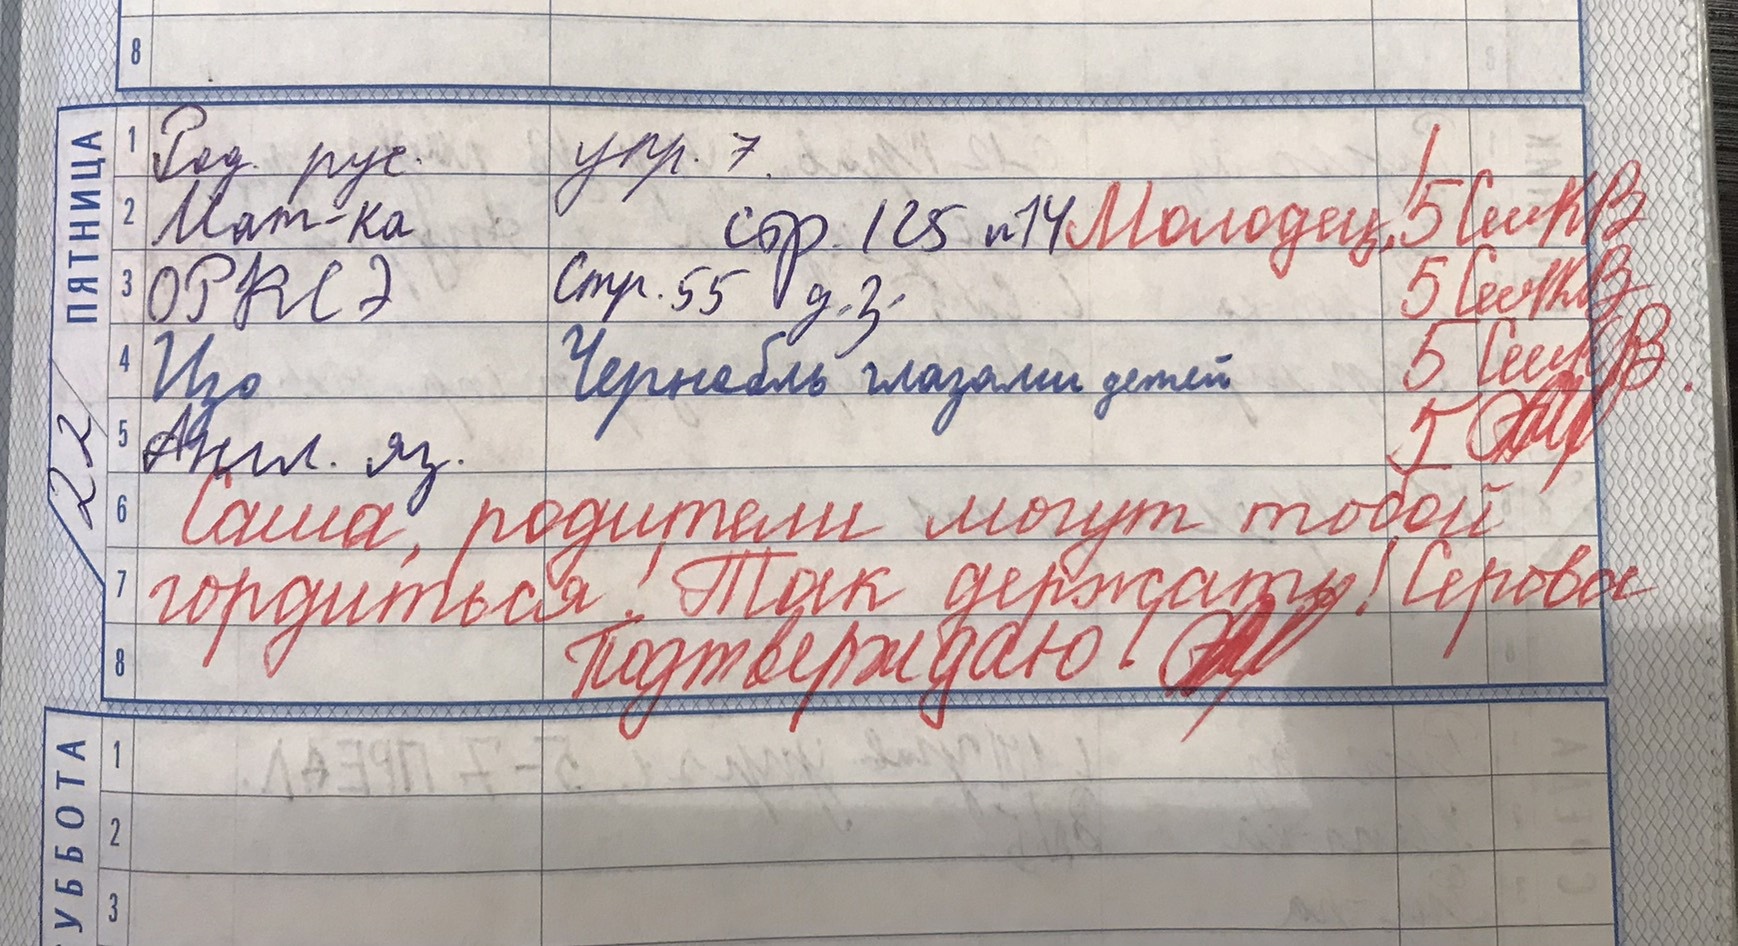 8
ПЯТНИЦА
22
1 Род. рус. упр. 7
2 Мат-ка стр. 125 н14 Молодец! 5
3 ОРКСЭ Стр. 55 д.з. 5
4 Изо Чернобль глазами детей 5
5 Англ. яз. 5
6 Саша, родители могут тобой
7 гордиться! Так держать! Серова
8 Подтверждаю!
СУББОТА
1
2
3